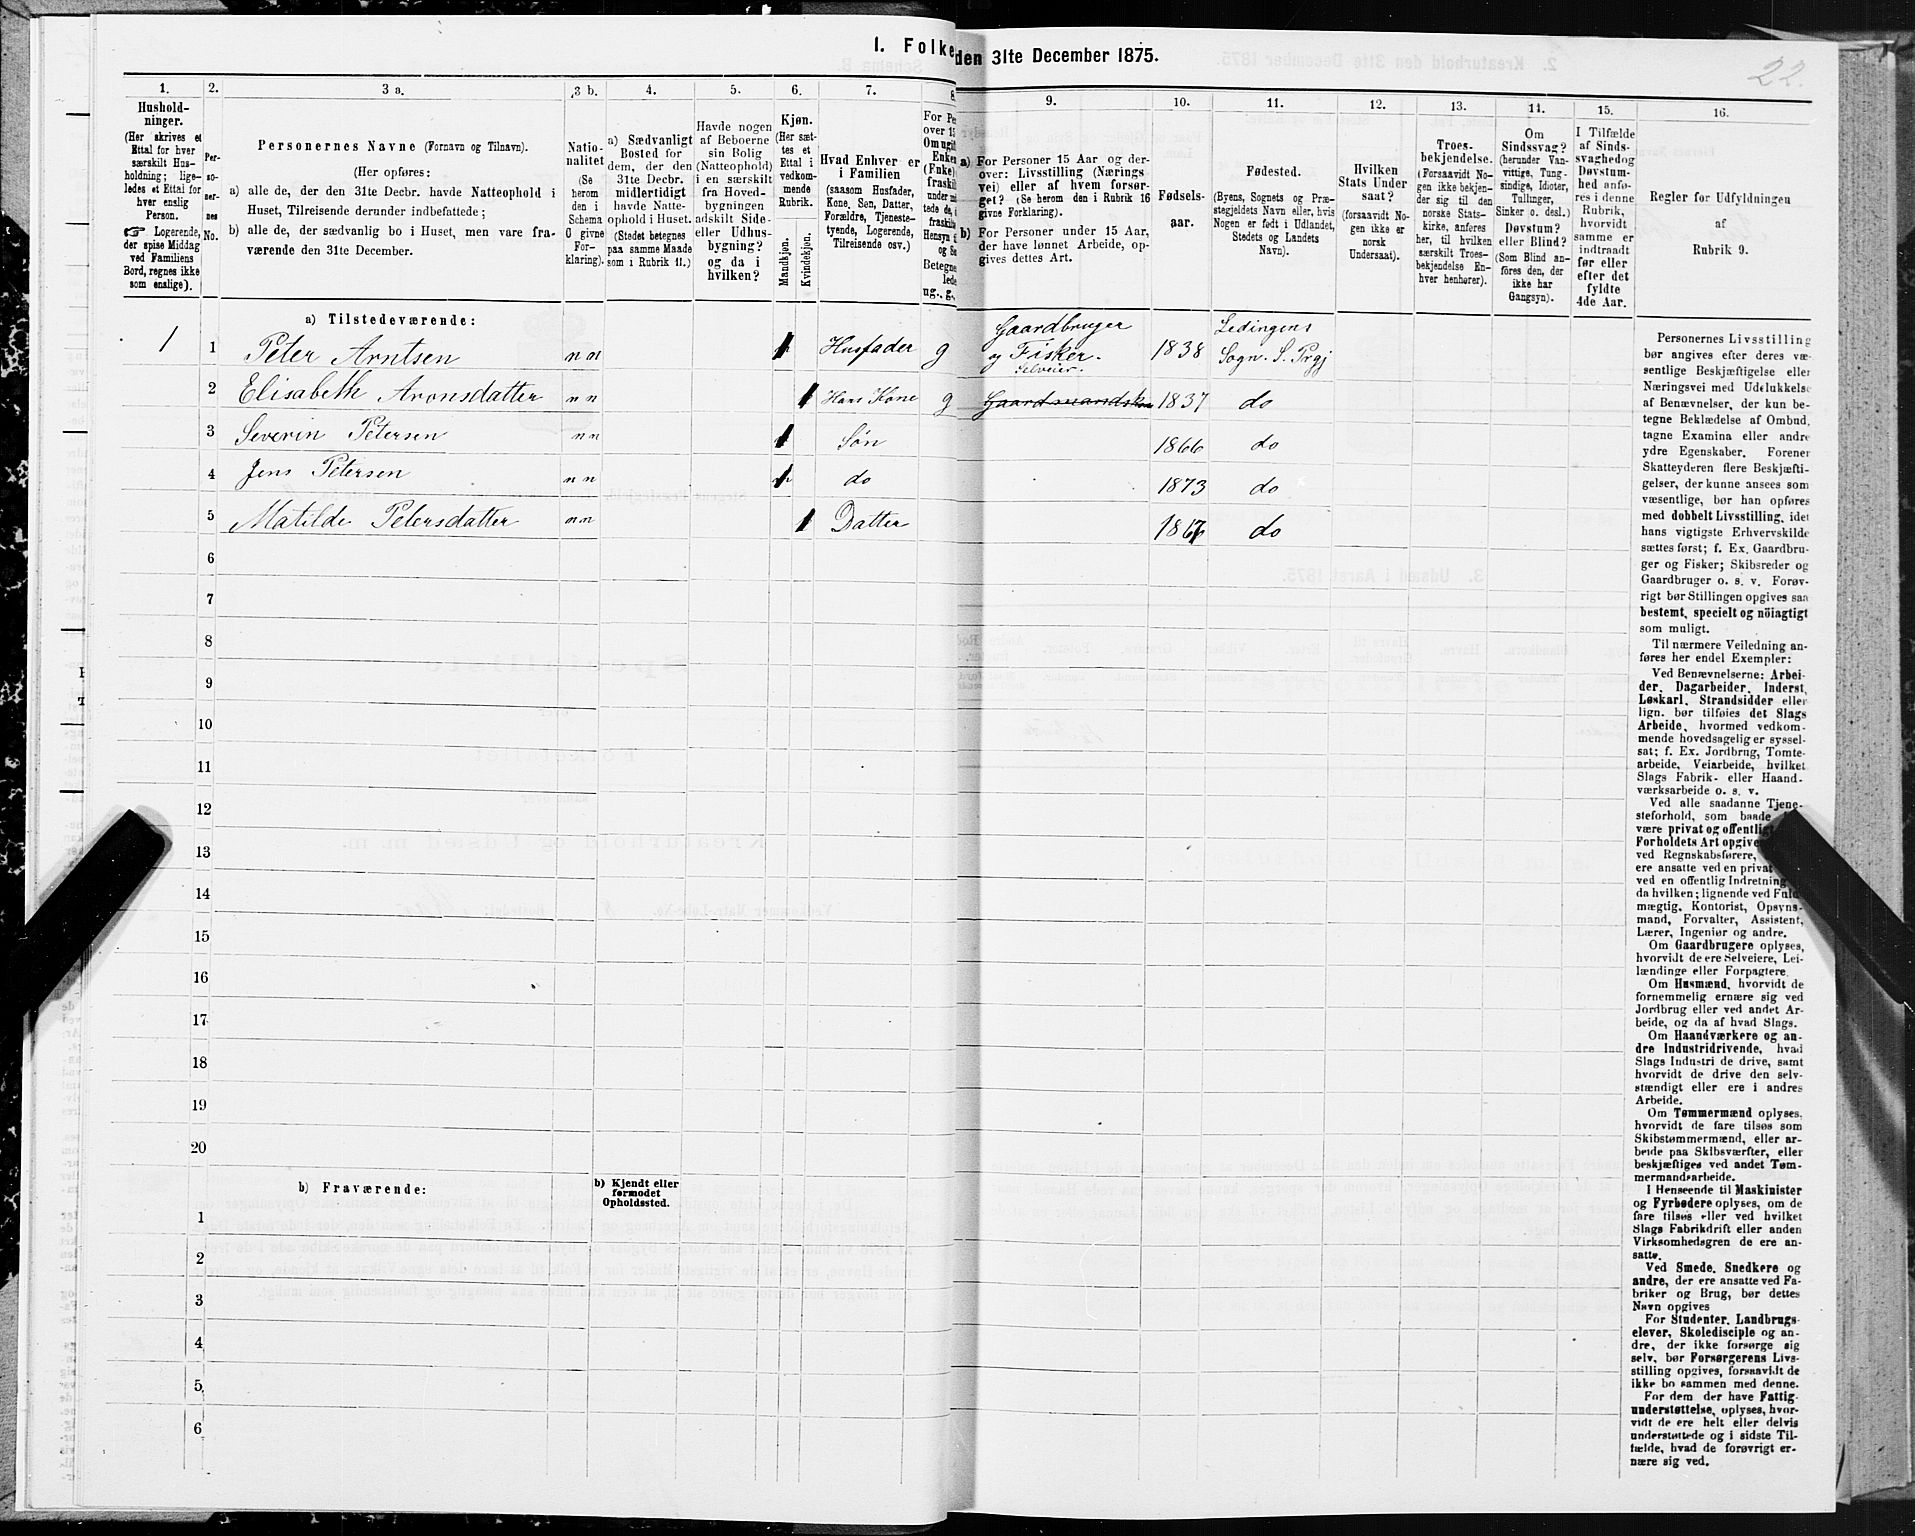 1. Folke
den 31te December 1875.
22.
1.
Hushold-
ninger.
(Her skrives et
Ettal for hver
særskilt Hus-
holdning; lige-
ledes et Ettal for
hver enslig
Person.
☞ Logerende,
der spise Middag
ved Familiens
Bord, regnes ikke
som enslige).
2.
Per-
so-
ner-
nes
No.
3 a.
Personernes Navne (Fornavn og Tilnavn).
(Her opføres:
a) alle de, der den 31te Decbr. havde Natteophold i
Huset, Tilreisende derunder indbefattede;
b) alle de, der sædvanlig bo i Huset, men vare fra-
værende den 31te December.
3 b.
Natio-
nalitet
(Se
herom
den i
Schema
O givne
For-
klaring).
4.
a) Sædvanligt
Bosted for
dem, der den
31te Decbr.
midlertidigt
havde Natte-
ophold i Huset.
(Stedet betegnes
paa samme Maade
som i Rubrik 11.)
5.
Havde nogen
af Beboerne
sin Bolig
(Natteophold)
i en særskilt
fra Hoved-
bygningen
adskilt Side-
eller Udhus-
bygning?
og da i
hvilken?
6.
Kjøn.
(Her sæt-
tes et
Ettal i
vedkom-
mende
Rubrik.
Mandkjøn.
Kvindekjøn.
7.
Hvad Enhver er
i Familien
(saasom Husfader,
Kone, Søn, Datter,
Forældre, Tjeneste-
tyende, Logerende,
Tilreisende osv.)
8.
For Pe
over 15
Om ugift
Enken
(Enke)
fraskil
under n
tede de,
fraskil
Hensyn
og Se
Betegne
lede
ug., g.,
9.
a) For Personer 15 Aar og der-
over: Livsstilling (Nærings
vei) eller af hvem forsør-
get? (Se herom den i Rubrik 16
givne Forklaring).
b) For Personer under 15 Aar,
der have lønnet Arbeide, op-
gives dettes Art.
10.
Fødsels-
aar.
11.
Fødested.
(Byens, Sognets og Præ-
stegjeldets Navn eller, hvis
Nogen er født i Udlandet,
Stedets og Landets
Navn).
12.
Hvilken
Stats Under
saat?
(forsaavidt No-
gen ikke er
norsk
Undersaat).
13.
Troes-
bekjendelse.
(Forsaavidt No-
gen ikke bekjen-
der sig til den
norske Stats-
kirke, anføres
her, til hvilken
særskilt Troes-
bekjendelse En-
hver henhører).
14.
Om
Sindssvag?
(herunder Van-
vittige, Tung-
sindige, Idioter,
Tullinger,
Sinker o. desl.)
Døvstum?
eller Blind?
(Som Blind an-
føres den, der
ikke har
Gangsyn).
15.
I Tilfælde
af Sinds-
svaghed og
Døvstum-
hed anfø-
res i denne
Rubrik,
hvorvidt
samme er
indtraadt
før eller
efter det
fyldte
4de Aar.
16.
Regler for Udfyldningen
af
Rubrik 9.
a) Tilstedeværende:
1 1 Peter Arntsen n n 1 Husfader g Gaardbruger og Fisker. Selveier. 1838 Lødingens Sogn. S. Prgj
2 Elisabeth Aronsdatter n n 1 Hans Kone g Gaardmandsk 1837 do
3 Severin Petersen n n 1 Søn 1866 do
4 Jens Petersen n n 1 do 1873 do
5 Matilde Petersdatter n n 1 Datter do
6
7
8
9
10
11
12
13
14
15
16
17
18
19
20
b) Fraværende:
b) Kjendt eller
formodet
Opholdssted.
1
2
3
4
5
6
Personernes Livsstilling
bør angives efter deres væ-
sentlige Beskjæftigelse eller
Næringsvei med Udelukkelse
af Benævnelser, der kun be-
tegne Beklædelse af Ombud,
tagne Examina eller andre
ydre Egenskaber. Forener
Skatteyderen flere Beskjæfti-
gelser, der kunne ansees som
væsentlige, bør han opføres
med dobbelt Livsstilling, idet
hans vigtigste Erhvervskilde
sættes først; f. Ex. Gaardbru-
ger og Fisker; Skibsreder og
Gaardbruger o. s. v. Forøv-
rigt bør Stillingen opgives saa
bestemt, specielt og nöiagtigt
som muligt.
Til nærmere Veiledning an-
føres her endel Exempler:
Ved Benævnelserne: Arbei-
der, Dagarbeider, Inderst,
Løskarl, Strandsidder eller
lign. bør tilføies det Slags
Arbeide, hvormed vedkom-
mende hovedsagelig er syssel-
sat; f. Ex. Jordbrug, Tomte-
arbeide, Veiarbeide, hvilket
Slags Fabrik- eller Haand-
værksarbeide o. s. v.
Ved alle saadanne Tjene-
steforhold, som baade
være privat og offentlig
Forholdets Art opgive
ved Regnskabsførere,
ere ansatte ved en privat
ved en offentlig Indretning
da hvilken; lignende ved Fuld-
mægtig, Kontorist, Opsyns-
mand, Forvalter, Assistent,
Lærer, Ingeniør og andre.
Om Gaardbrugere oplyses,
hvorvidt de ere Selveiere, Lei-
lændinge eller Forpagtere.
Om Husmænd, hvorvidt de
fornemmelig ernære sig ved
Jordbrug eller ved andet Ar-
beide, og da af hvad Slags.
Om Haandværkere og an-
dre Industridrivende, hvad
Slags Industri de drive, samt
hvorvidt de drive den selv-
stændigt eller ere i andres
Arbeide.
Om Tømmermænd oplyses,
hvorvidt de fare tilsøs som
Skibstømmermænd, eller ar-
beide paa Skibsværfter, eller
beskjæftiges ved andet Tøm-
mermandsarbeide.
I Henseende til Maskinister
og Fyrbødere oplyses, om de
fare tilsøs eller ved hvilket
Slags Fabrikdrift eller anden
Virksomhedsgren de ere an-
satte.
Ved Smede, Snedkere og
andre, der ere ansatte ved Fa-
briker og Brug, bør dettes
Navn opgives
For Studenter, Landbrugs-
elever, Skoledisciple og an-
dre, der ikke forsørge sig
selv, bør Forsørgerens Livs-
stilling opgives, forsaavidt de
ikke bo sammen med denne.
For dem der have Fattig-
understøttelse, oplyses, hvor-
vidt de ere helt eller delvis
understøttede og i sidste Til-
fælde, hvad de forøvrigt er-
nære sig ved.